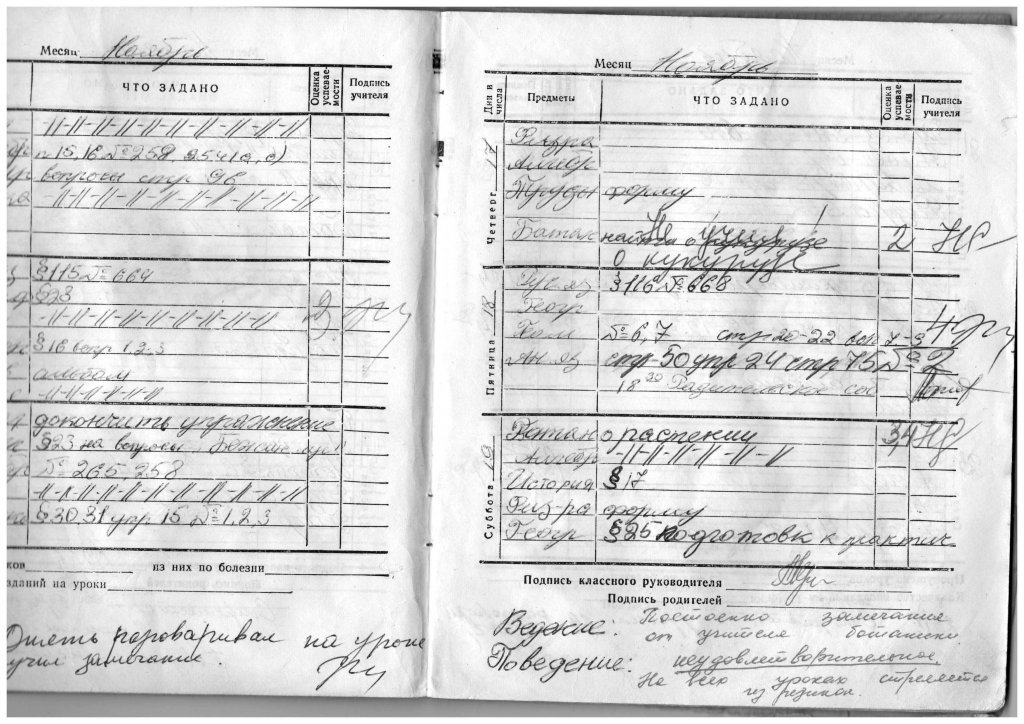 Месяц Ноябрь
ЧТО ЗАДАНО
Оценка успеваемости
Подпись учителя
-||-||-||-||-||-||-||-||-||
п 15, 16 № 258, 254(а, д)
вопросы стр 96
-||-||-||-||-||-||-||-||-||
§ 115 № 664
§ 23
-||-||-||-||-||-||-||-||
§ 16 вопр 1, 2, 3
альбом
-||-||-||-||-||
докончить упражнение
§ 23 на вопросы
№ 265, 258
-||-||-||-||-||-||-||-||-||
§ 30, 31 упр 15 № 1, 2, 3
из них по болезни
зданий на уроки
Опять разговаривал на уроке
учил замечание.
Месяц Ноябрь
Дни и числа
Предметы
ЧТО ЗАДАНО
Оценка успеваемости
Подпись учителя
Четверг 17
Физра
Алгебр
Труды форму
Ботан Не учил! 2
о кукурузе
Пятница 18
Рус яз § 116 № 668
Геогр
Геом № 6, 7 стр 20-22 4
Ан яз стр 50 упр 24 стр 75 № 2
18 30 Родительское соб
Суббота 19
Ботан о растении 3/4
Алгебр -||-||-||-||-||
История § 17
Физ-ра форму
Геогр § 25 подготовк к практич
Подпись классного руководителя
Подпись родителей
Ведение: Постоенно замечание
от учителя ботаники.
Поведение: неудовлетворительное.
На всех уроках стреляется
из резинки.